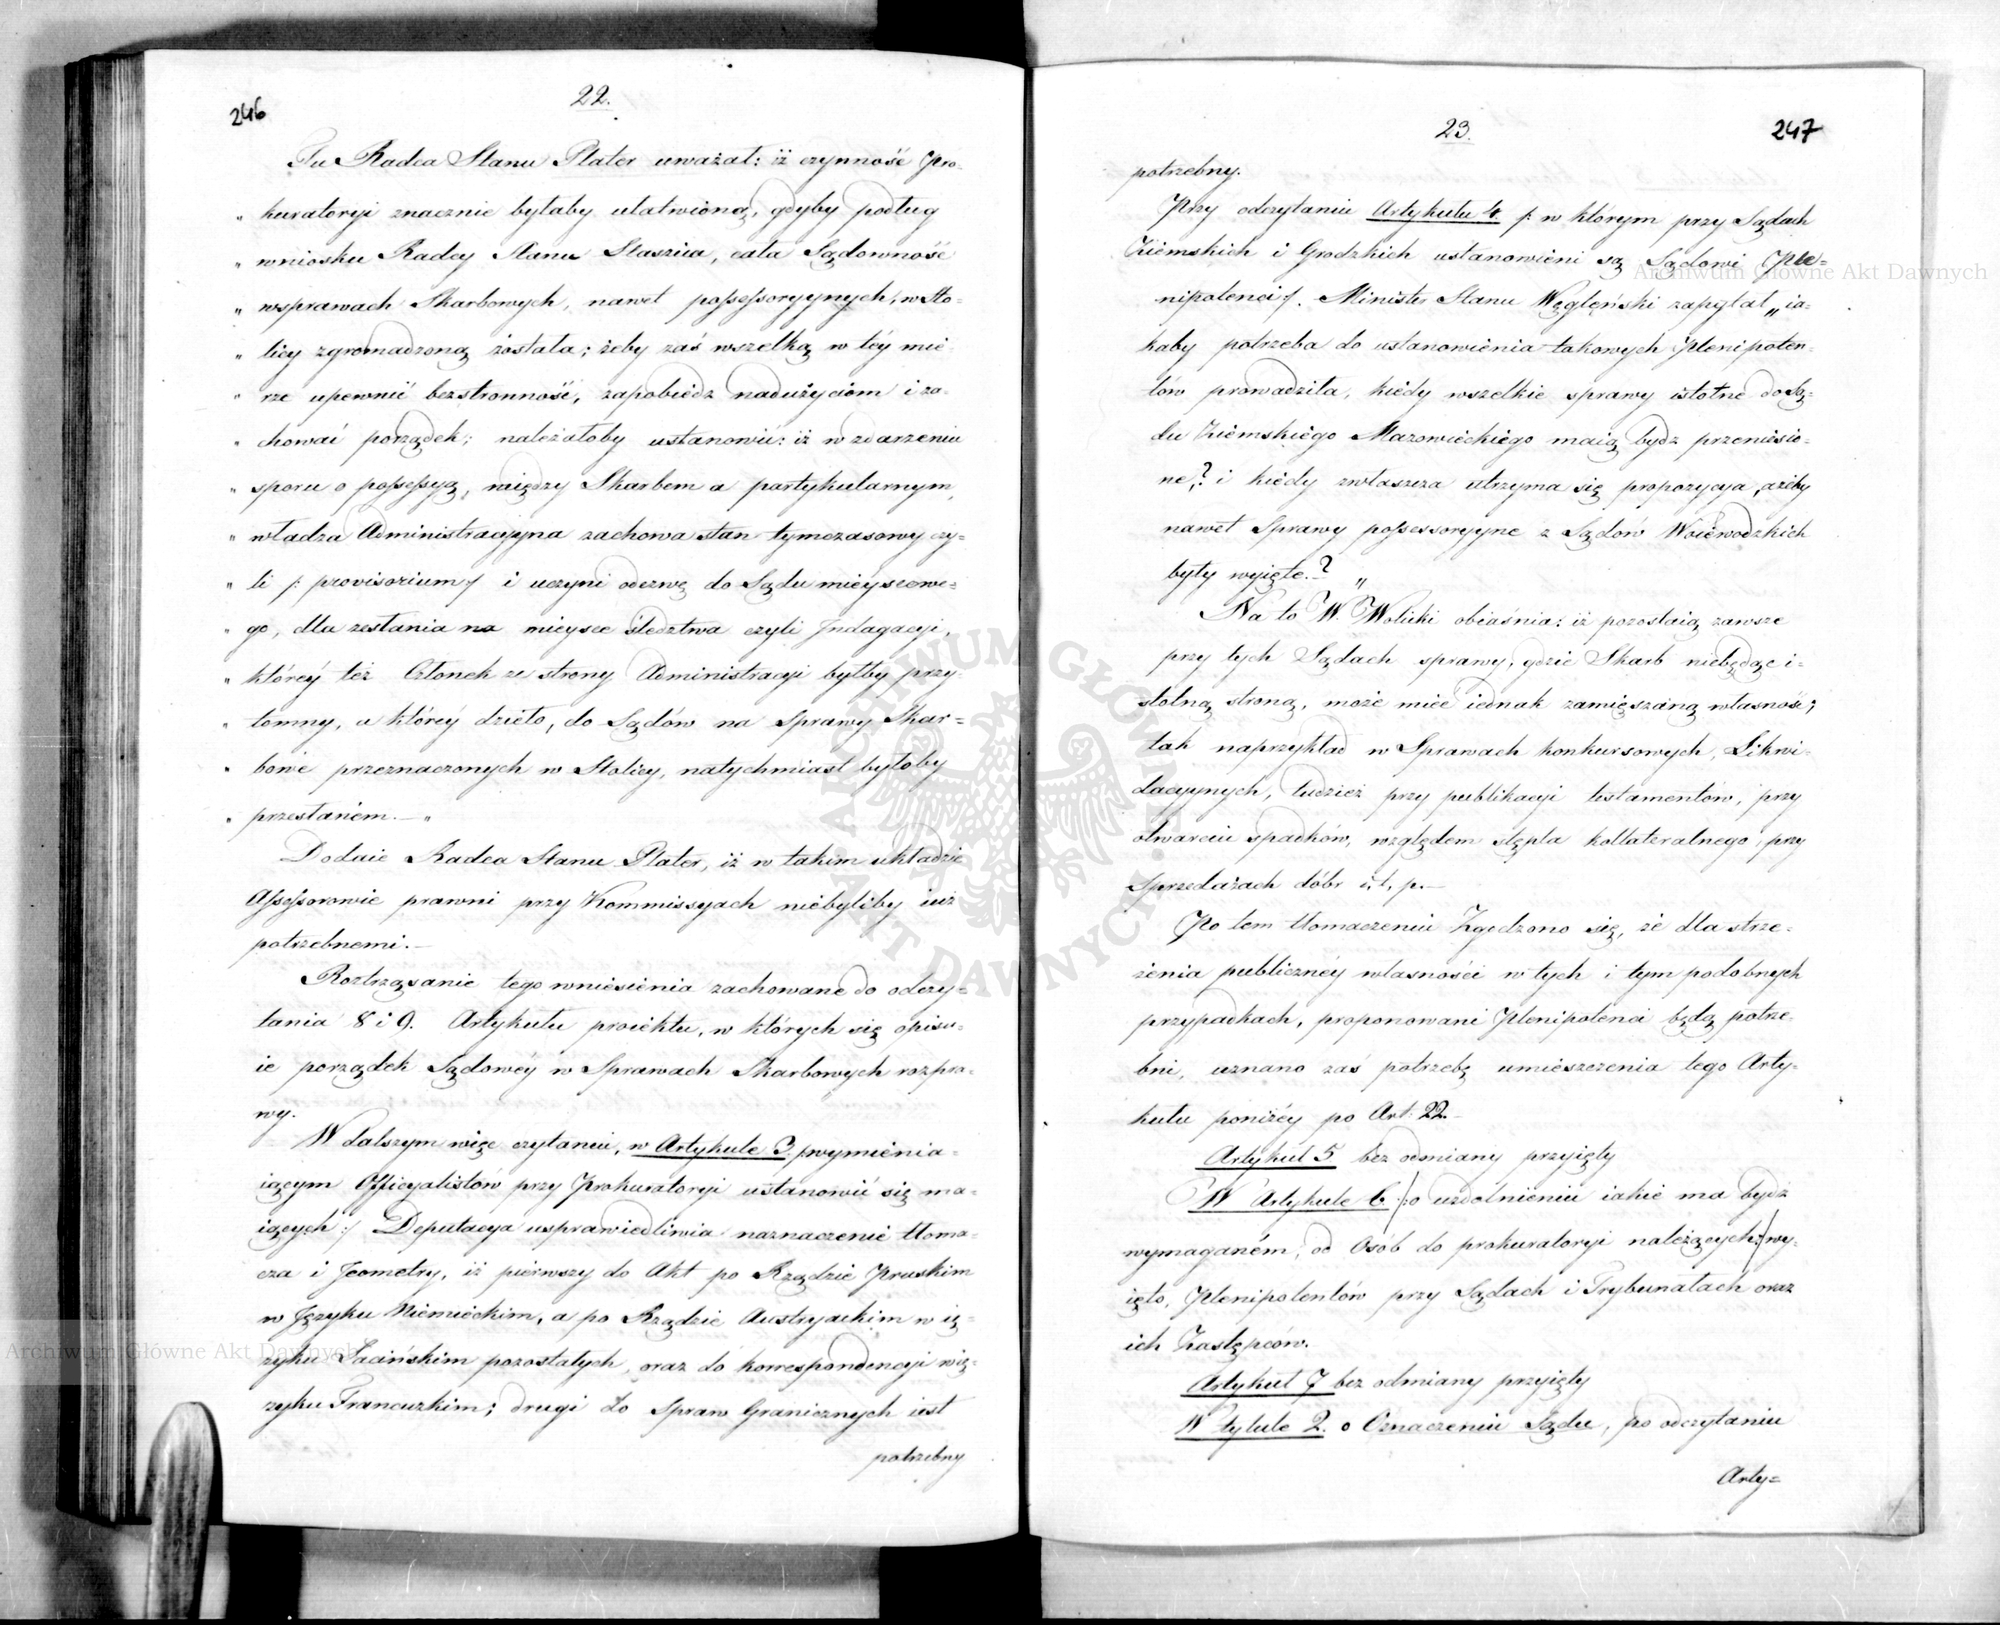 246
22.
Tu Radca Stanu Plater uważał: iż czynność Pro-
„ kuratoryi znacznie byłaby ułatwioną, gdyby podług
„ wniosku Radcy Stanu Staszica, cała Sądowność
„ wsprawach Skarbowych, nawet possessoryynych, w Sto-
„ licy zgromadzoną została; żeby zaś wszelką w téy mie-
„ rze upewnić bezstronność, zapobiedz nadużyciom i za-
„ chować porządek; należałoby ustanowić: iż w zdarzeniu
„ sporu o possessyą, między Skarbem a partykularnym,
„ władza Administracyyna zachowa stan tymczasowy czy-
„ li /: provisorium :/ i uczyni odezwę do Sądu mieyscowe-
„ go, dla zesłania na mieysce śledztwa czyli Indagacyi,
„ któréy też Członek ze strony Administracyi byłby przy-
„ tomny, a któréy dzieło, do Sądów na Sprawy Skar=
„ bowe przeznaczonych w Stolicy, natychmiast byłoby
„ przesłaném. — „
Dodaie Radca Stanu Plater, iż w takim układzie
Assessorowie prawni przy Kommissyach niebyliby iuż
potrzebnemi. —
Roztrząsanie tego wniesienia zachowane do odczy=
tania 8 i 9. Artykułu proiektu, w których się opisu-
ie porządek Sądowéy w Sprawach Skarbowych rozpra-
wy.
W dalszym więc czytaniu, w Artykule 3. /:wymienia-
iącym Officyalistów przy Prokuratoryi ustanowić się ma-
iących :/ Deputacya usprawiedliwia naznaczenie tłoma-
cza i Jeometry, iż pierwszy do Akt po Rządzie Pruskim
w Języku Niemieckim, a po Rządzie Austryackim w ię-
zyku Łacińskim pozostałych, oraz do korrespondencyi wię-
zyku Francuzkim; drugi do Spraw Granicznych iest
potrzebny
23.
247
potrzebny.
Przy odczytaniu Artykułu 4 /: w którym przy Sądach
Ziemskich i Grodzkich ustanowieni są Sądowi Ple=
nipotenci :/. Minister Stanu Węgleński zapytał „ ia-
kaby potrzeba do ustanowienia takowych Plenipoten-
tów prowadziła, kiedy wszelkie sprawy istotne do Są-
du Ziemskiego Mazowieckiego maią bydz przeniesio-
ne,? i kiedy zwłaszcza utrzyma się propozycya, ażeby
nawet Sprawy possessoryyne z Sądów Woiewodzkich
były wyięte.? „
Na to W. Wolicki obiaśnia: iż pozostaią zawsze
przy tych Sądach sprawy, gdzie Skarb niebędąc i-
stotną stroną, może mieć iednak zamięszaną własność;
tak naprzykład w Sprawach konkursowych, Likwi-
dacyynych, tudzież przy publikacyi testamentów, przy
otwarciu spadków, względem stępla kollateralnego, przy
Sprzedażach dóbr i, t, p. —
Po tem tłomaczeniu Zgodzono się, że dla strze-
żenia publicznéy własności w tych i tym podobnych
przypadkach, proponowani Plenipotenci będą potrze-
bni, uznano zaś potrzebę umieszczenia tego Arty-
kułu poniżéy po Art: 22.
Artykuł 5 bez odmiany przyięty
W Artykule 6. /:o uzdolnieniu iakie ma bydź
wymaganém, od Osób do prokuratoryi należących:/ wy-
ięto, Plenipotentów przy Sądach i Trybunałach oraz
ich Zastępców.
Artykuł 7 bez odmiany przyięty
W tytule 2. o Oznaczeniu Sądu, po odczytaniu
Arty=
Archiwum Główne Akt Dawnych
Archiwum Główne Akt Dawnych
ARCHIWUM GŁÓWNE AKT DAWNYCH